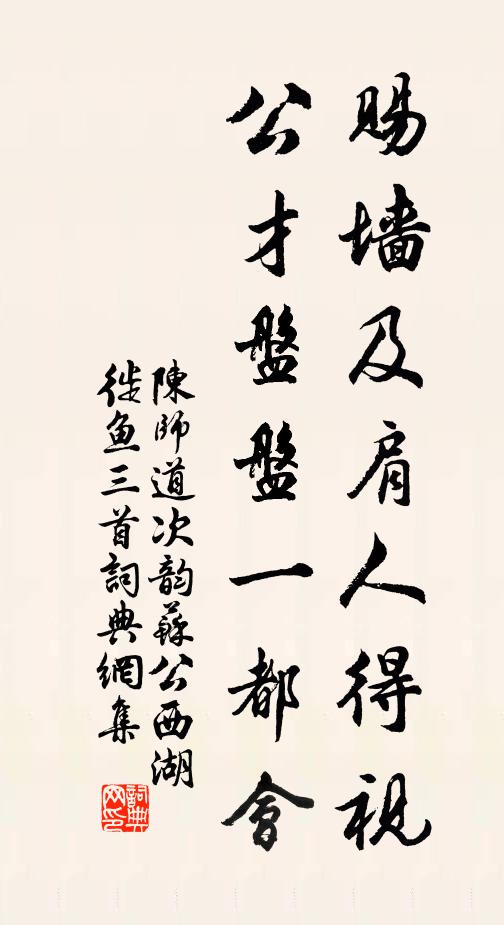 赐墙及肩人得视
公才盤盤一都會
陳師道次韵蘇公西湖
徙鱼三首詞典網集
詞典网印